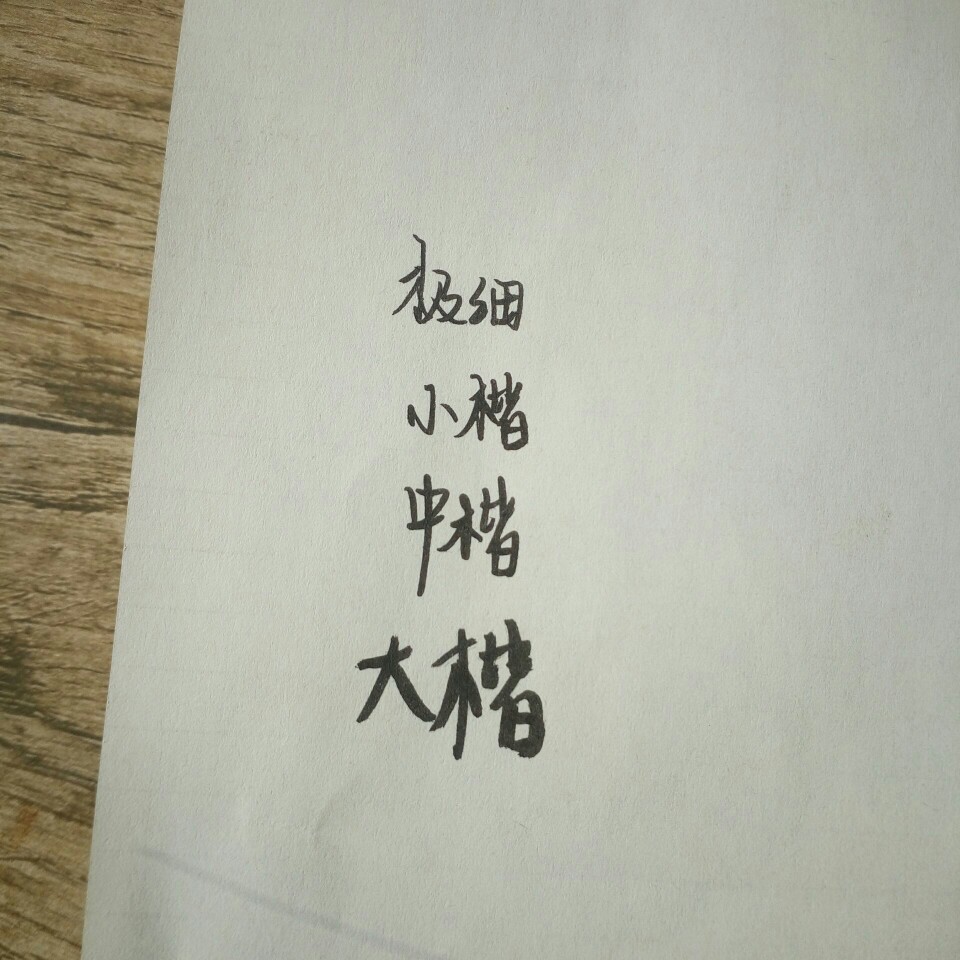 极细
小楷
中楷
大楷